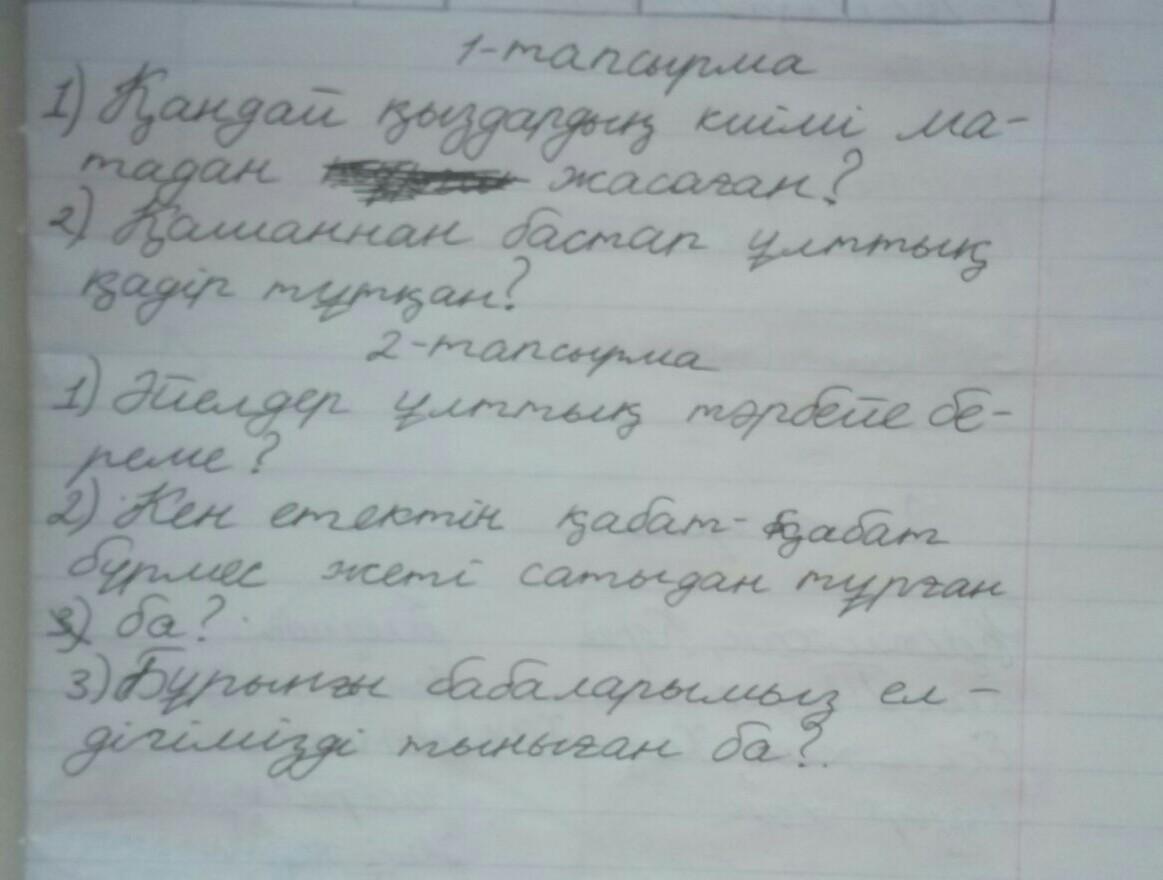 1-тапсырма
1) Қандай қыздардың киімі ма-
тадан жасаған?
2) Қашаннан бастап ұлттық
қадір тұтқан?
2-тапсырма
1) Әйелдер ұлттық тәрбейе бе-
реме?
2) Кен етектін қабат-қабат
бүрмес жеті сатыдан тұрған
3) ба?
3) Бұрынғы бабаларымыз ел-
дігімізді тыныған ба?